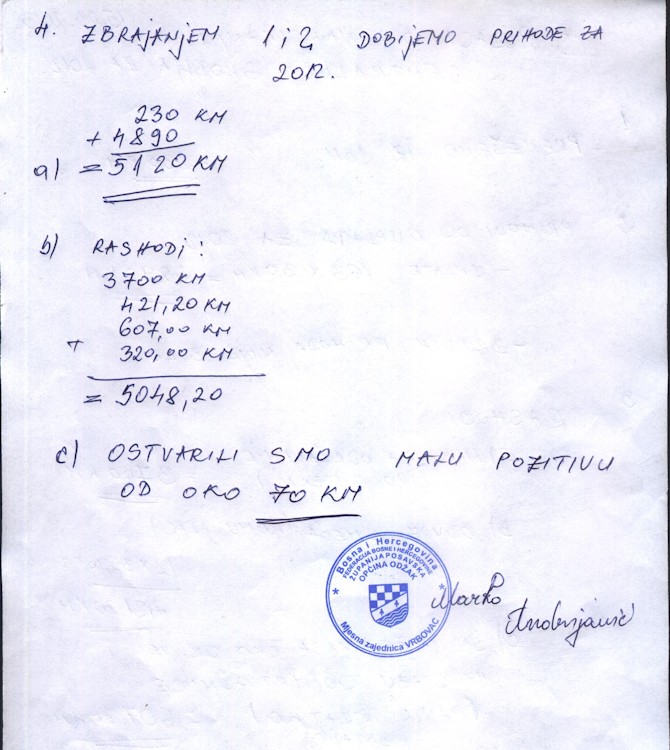 4. ZBRAJANJEM 1 i 2 DOBIJEMO PRIHODE ZA
2012.
230 KM
+ 4890
a) = 5120 KM
b) RASHODI:
3700 KM
421,20 KM
607,00 KM
+ 320,00 KM
= 5048,20
c) OSTVARILI SMO MALU POZITIVU
OD OKO 70 KM
Bosna i Hercegovina
FEDERACIJA BOSNE I HERCEGOVINE
ŽUPANIJA POSAVSKA
OPĆINA ODŽAK
Mjesna zajednica VRBOVAC
Marko